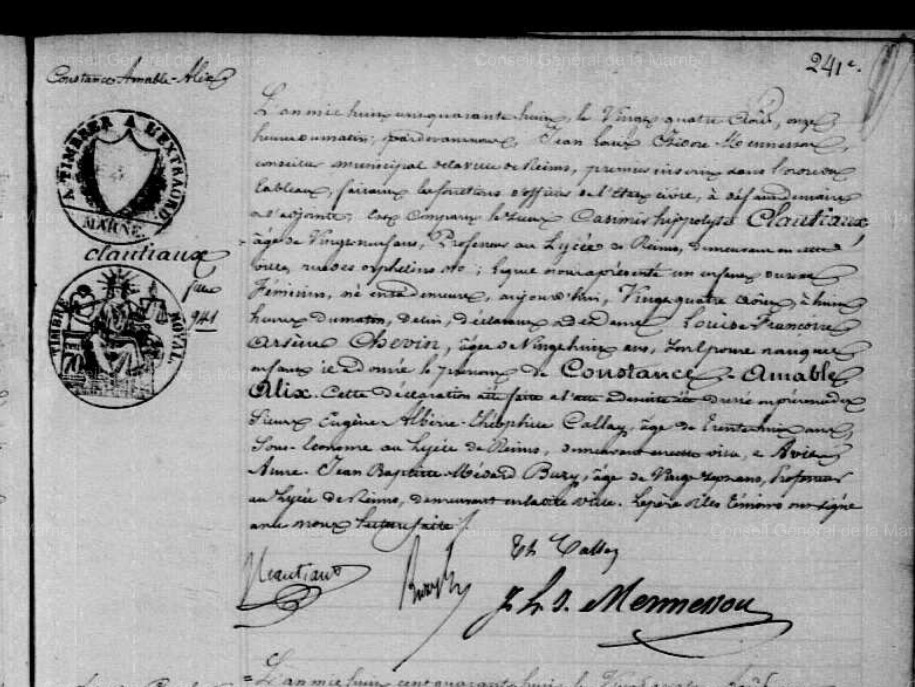 Conseil Général de la Marne
Conseil Général de la Marne
241e.
Constance-Amable-Alix
L'an mil huit cent quarante huit, le Vingt quatre Août, onze
heures du matin, pardevant nous, Jean Louis Isidore Mennesson,
conseiller municipal de la ville de Reims, premier inscrit dans l'ordre du
tableau, faisant les fonctions d'officier de l'Etat civil, à défaut du maire
et d'adjoints, Est Comparu le Sieur Casimir hippolyte Clautiaux,
âgé de Vingt neuf ans, Professeur au Lycée de Reims, demeurant en cette
ville, rue des orphelins ; lequel nous a présenté un enfant du sexe
Féminin, né en sa demeure, aujourd'hui, Vingt quatre Août, à huit
heures du matin, de lui, déclarant et de dame Louise Françoise
Arsène Chevin, âgée de Vingt huit ans, son épouse, auquel
enfant il a donné le prénom de Constance-Amable
Alix. Cette déclaration été faite en présence des
Sieurs Eugène Albère théophile Callay, âgé de Trente huit ans,
Sous-Econome au Lycée de Reims, demeurant en cette ville, et
Jean Baptiste Médard Buzy, âgé de Vingt sept ans, Professeur
au Lycée de Reims, demeurant en ladite ville. Le père et les témoins ont signé
avec nous lecture faite.
A TIMBRER A L'EXTRAORD.
MARNE.
clautiaux
941
TIMBRE ROYAL.
Clautiaux
Buzy
Th Callay
J. L. I. Mennesson
L'an mil huit cent quarante huit, le Vingt quatre Août